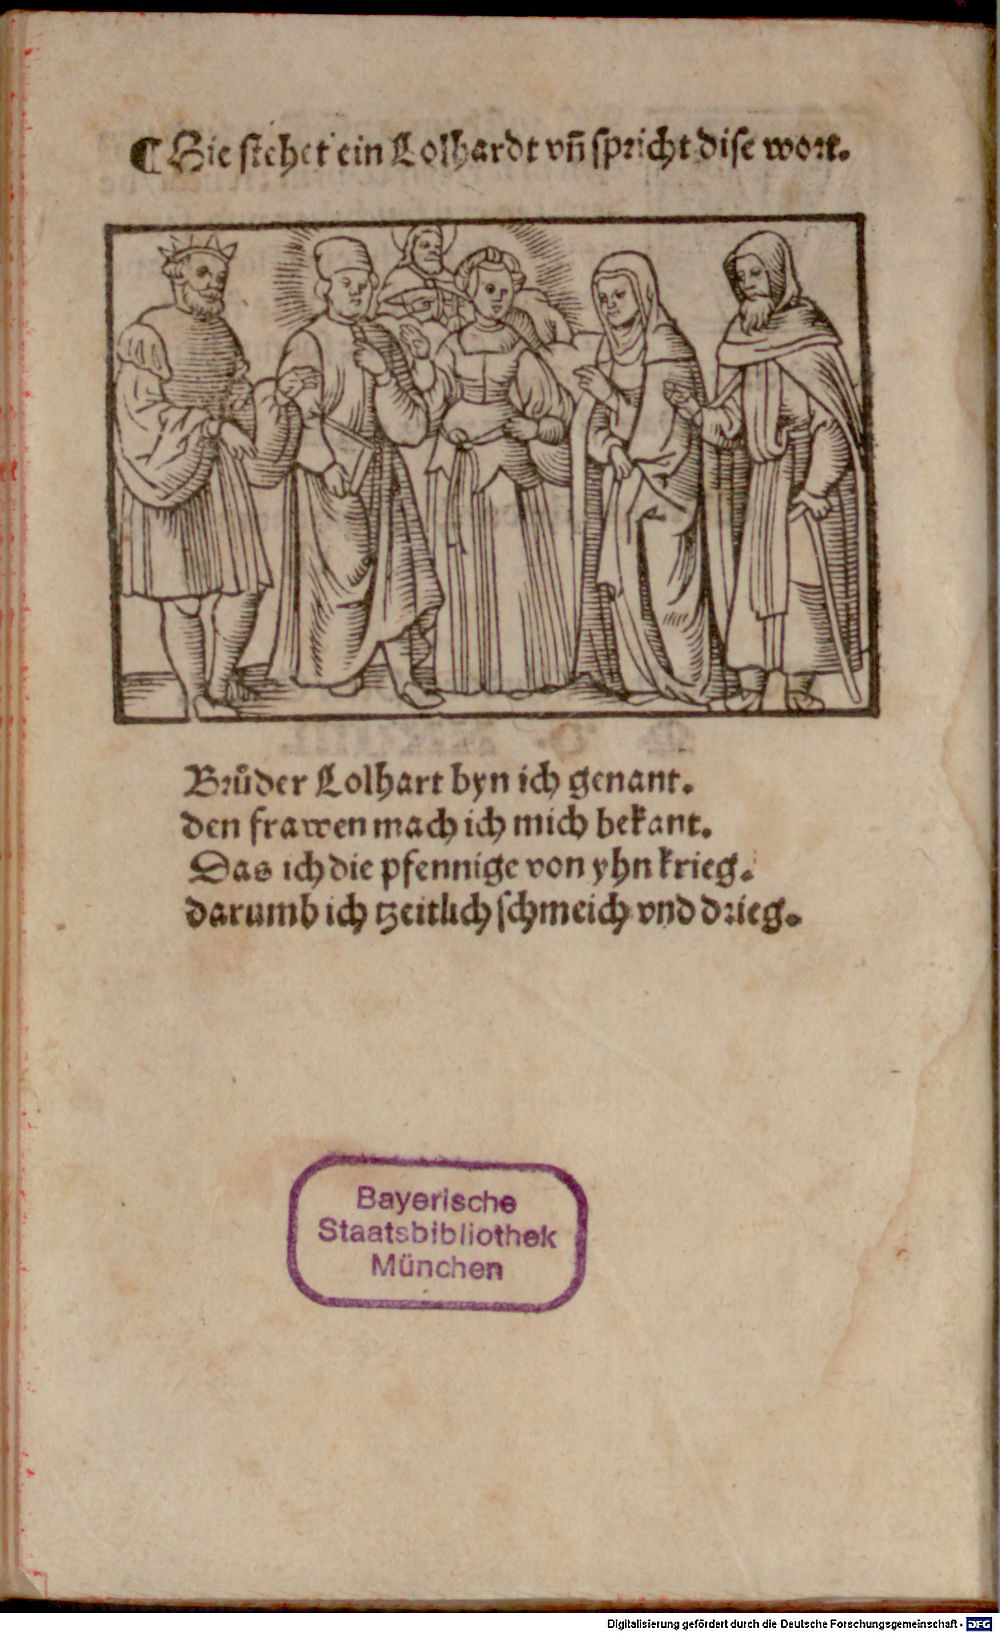 ¶ Hie stehet ein Lolhardt vn̄ spricht dise wort.
Brůder Lolhart byn ich genant.
den frawen mach ich mich bekant.
Das ich die pfennige von yhn krieg.
darumb ich tzeitlich schmeich vnd drieg.
Bayerische
Staatsbibliothek
München
Digitalisierung gefördert durch die Deutsche Forschungsgemeinschaft - DFG